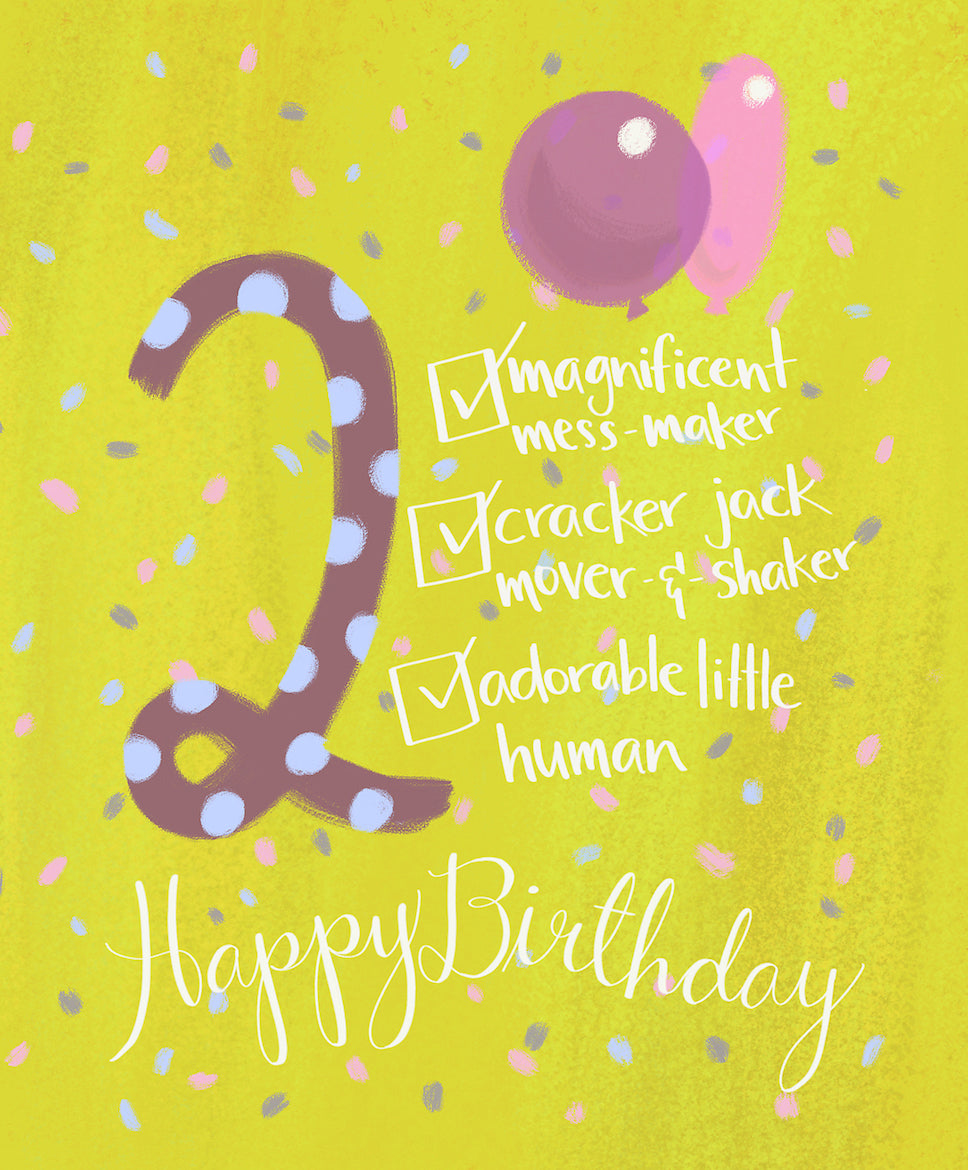 2
magnificent
mess-maker
cracker jack
mover-&-shaker
adorable little
human
Happy Birthday